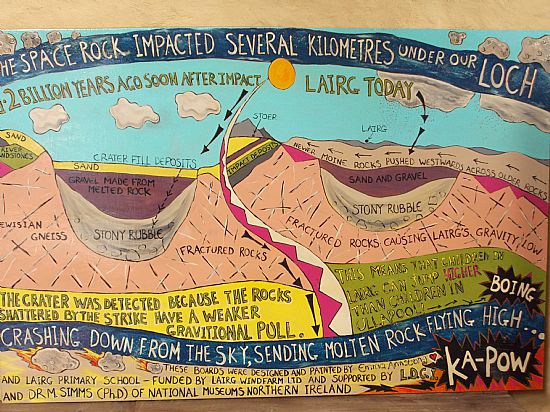 THE SPACE ROCK IMPACTED SEVERAL KILOMETRES UNDER OUR LOCH
1.2 BILLION YEARS AGO SOON AFTER IMPACT
LAIRG TODAY
STOER
LAIRG
SAND
RIVER
SANDSTONES
CRATER FILL DEPOSITS
SAND
IMPACT DEPOSITS
NEWER MOINE ROCKS PUSHED WESTWARDS ACROSS OLDER ROCKS
GRAVEL MADE FROM
MELTED ROCK
SAND AND GRAVEL
STONY RUBBLE
STONY RUBBLE
LEWISIAN
GNEISS
FRACTURED ROCKS
FRACTURED ROCKS CAUSING LAIRG'S GRAVITY LOW
THIS MEANS THAT CHILDREN IN
LAIRG CAN JUMP HIGHER
THAN CHILDREN IN
ULLAPOOL
BOING
THE CRATER WAS DETECTED BECAUSE THE ROCKS
SHATTERED BY THE STRIKE HAVE A WEAKER
GRAVITIONAL PULL.
CRASHING DOWN FROM THE SKY, SENDING MOLTEN ROCK FLYING HIGH...
KA-POW
THESE BOARDS WERE DESIGNED AND PAINTED BY Emma Armstrong
AND LAIRG PRIMARY SCHOOL - FUNDED BY LAIRG WINDFARM LTD AND SUPPORTED BY L.D.C.I
AND DR M. SIMMS (PhD) OF NATIONAL MUSEUMS NORTHERN IRELAND